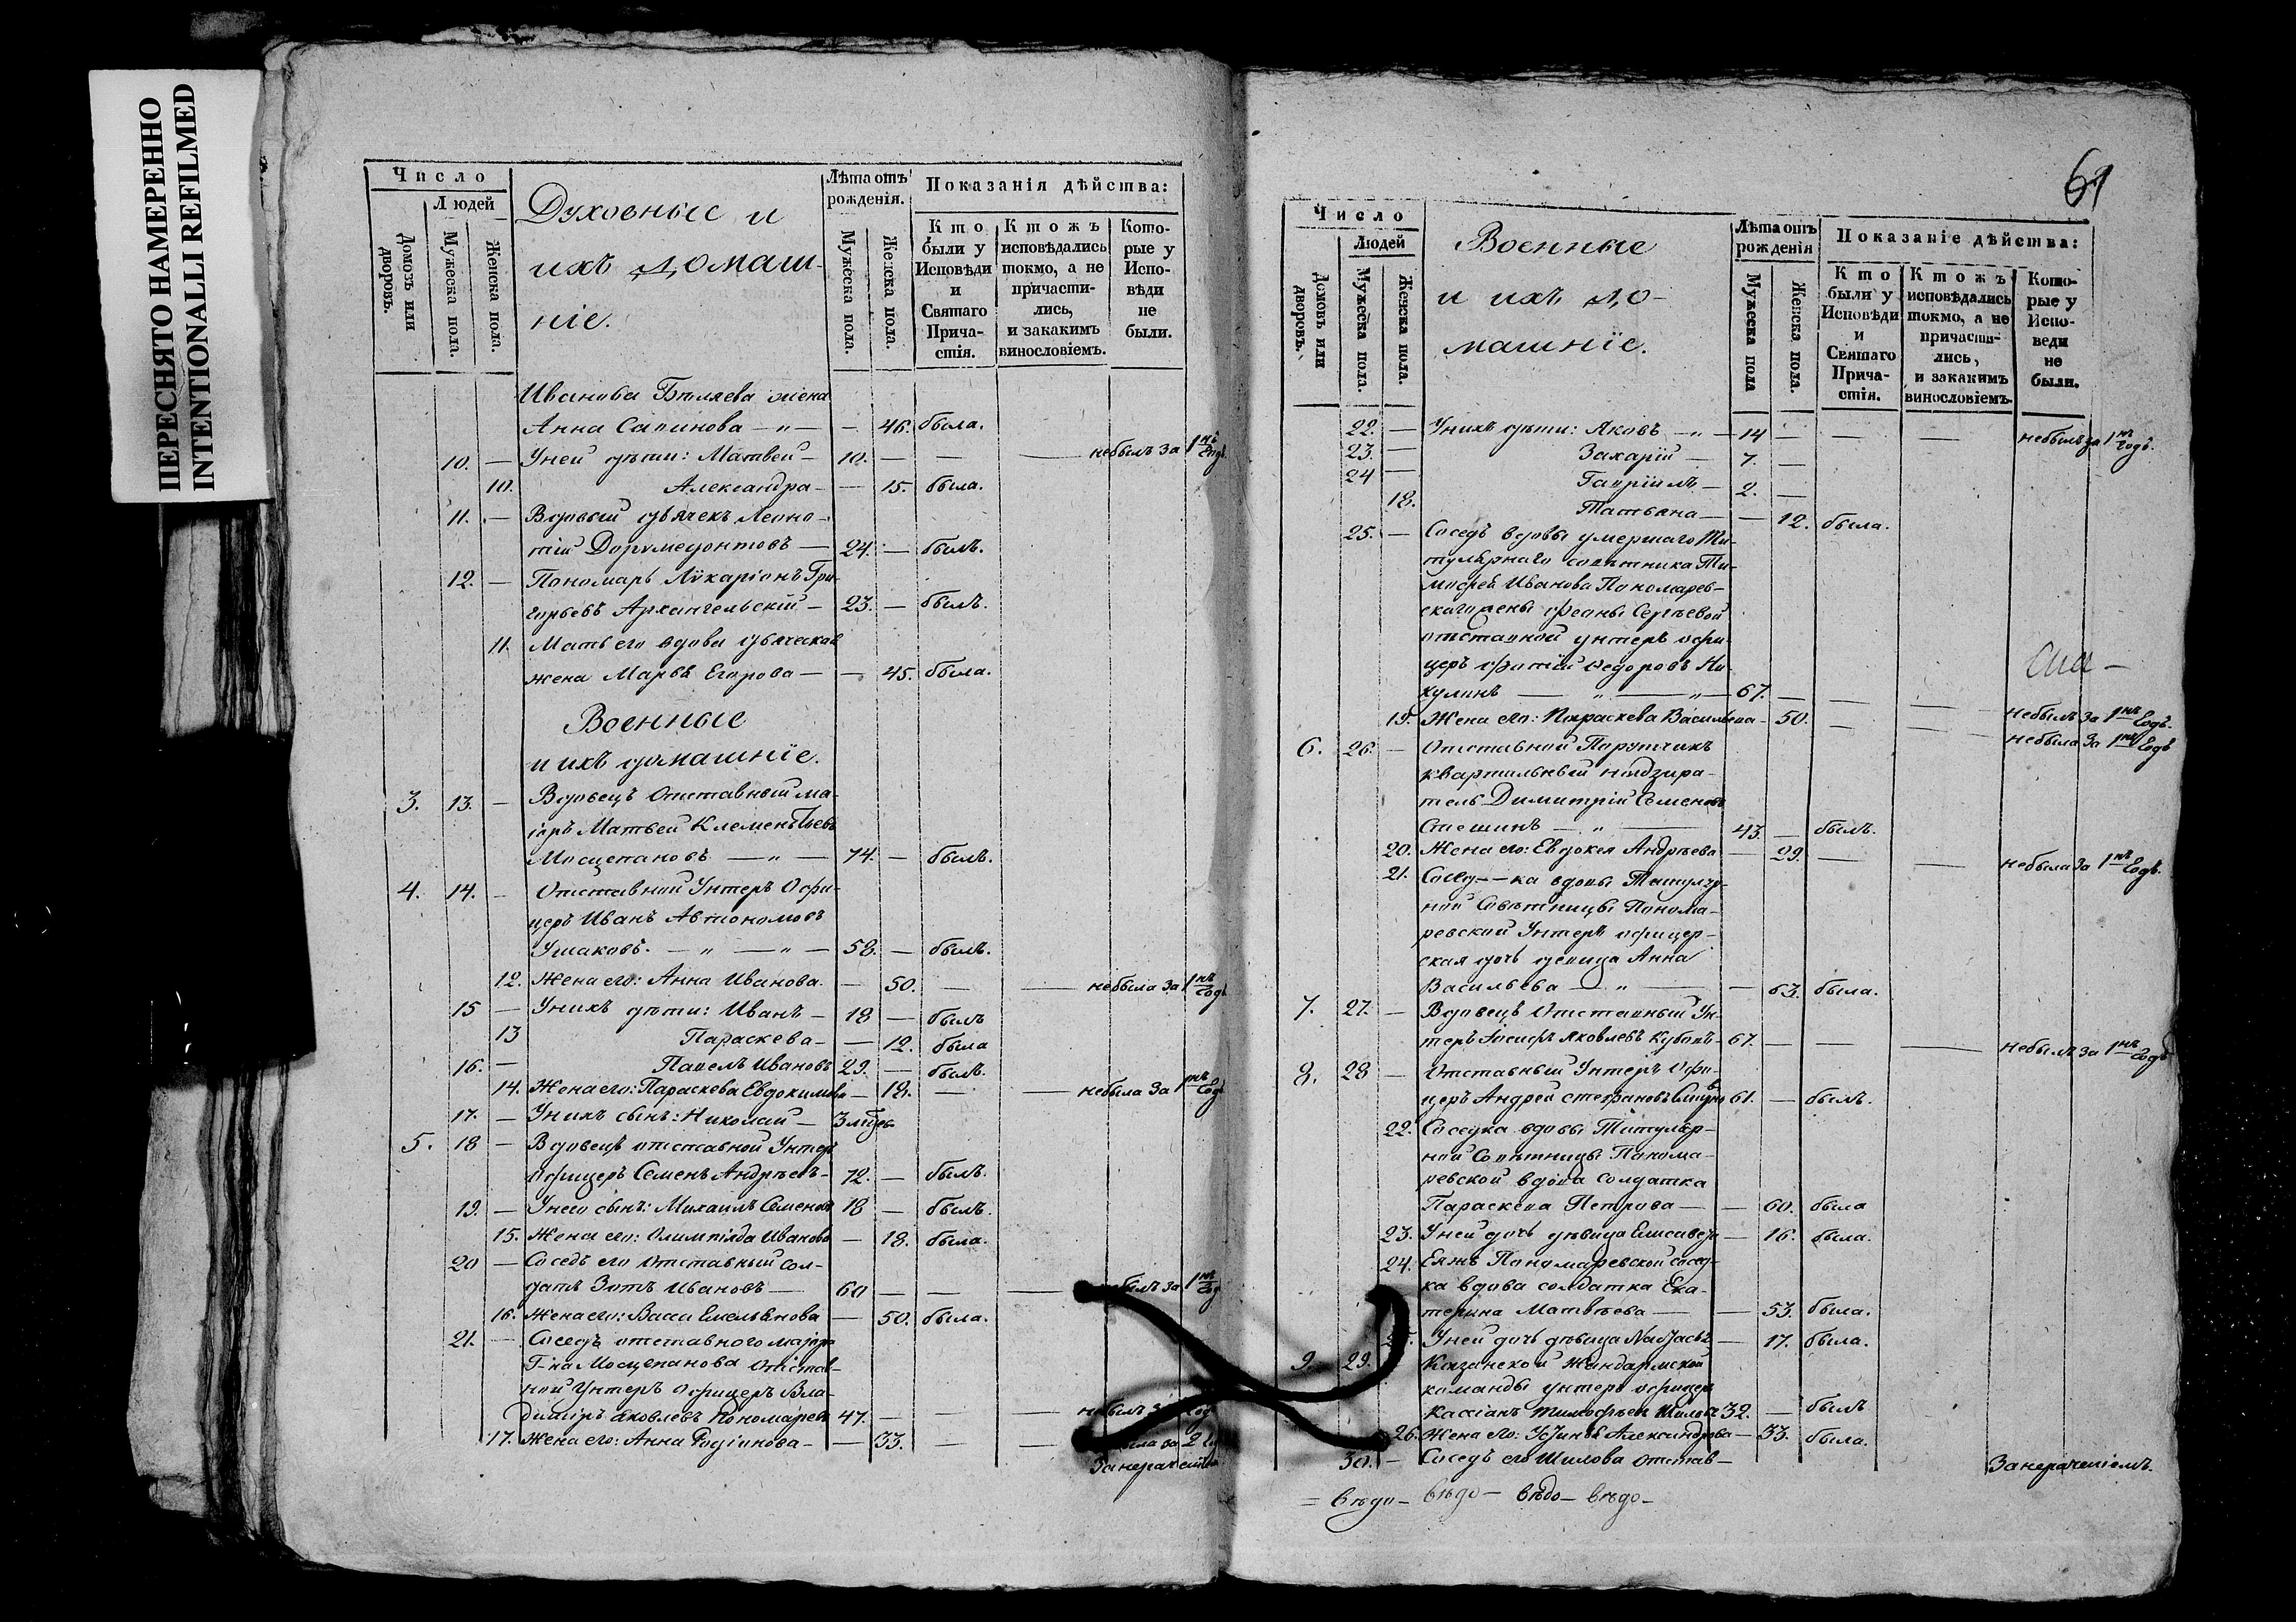 ПЕРЕСНЯТО НАМЕРЕННО
INTENTIONALLI REFILMED
Число
Людей
Домовъ или дворовъ.
Мужеска пола.
Женска пола.
Духовные и
ихъ домаш-
ніе.
Лѣта отъ рожденія.
Мужеска пола.
Женска пола.
Показанія дѣйства:
Кто были у Исповѣди и Святаго Причастія.
Ктожъ исповѣдались токмо, а не причастились, и закакимъ винословіемъ.
Которые у Исповѣди не были.
Иванова Бѣляева жена
Анна Савинова — „ — — 46. была.
10. — Уней дѣти: Матвей — 10. — — — небылъ за 1нъ Годъ.
10. Александра — — 15. была.
11. — Вдовый дьячекъ Леон-
тій Доримедонтовъ — 24. — былъ.
12. — Пономарь Иларіонъ Гри-
горьевъ Архангельскій — 23. — былъ.
11. Мать его вдова дьяческая
жена Марья Егорова — — 45. была.
Военные
и ихъ домашніе.
3. 13. — Вдовецъ Отставный ма-
іоръ Матвей Клементьевъ
Мосцепановъ — „ — 74. — былъ.
4. 14. — Отставной Унтеръ Офи-
церъ Иванъ Автономовъ
Ушаковъ. — „ — „ — 58. — былъ.
12. Жена его: Анна Иванова. — 50. — — небыла за 1нъ Годъ
15 — Унихъ дѣти: Иванъ — 18 — былъ
13 Параскева — — 12. была
16. — Павелъ Ивановъ 29. — былъ.
14. Жена его: Параскева Евдокимова — 18. — — небыла за 1нъ Годъ
17. — Унихъ сынъ: Николай — 3
5. 18 — Вдовецъ отставной Унтеръ
офицеръ Семенъ Андрѣевъ — 72. — былъ.
19. — Унего сынъ: Михаилъ Семеновъ 18 — былъ.
15. Жена его: Олимпіада Иванова — 18. была.
20 — Соседъ его Отставный Сол-
датъ Зотъ Ивановъ — 60 — — — небылъ за 1нъ Год
16. Жена его: Васса Емельянова — 50. была.
21. — Соседъ отставного маіора
Г-на Мосцепанова Отстав-
ной Унтеръ Офицеръ Вла-
диміръ Яковлевъ Пономаревъ 47. — — — небылъ за
17. Жена его: Анна Родіонова — — 33. — — была за 2
Занераченіемъ
61
Число
Людей
Домовъ или дворовъ.
Мужеска пола.
Женска пола.
Военные
и ихъ до-
машніе.
Лѣта отъ рожденія
Мужеска пола
Женска пола.
Показаніе дѣйства:
Кто были у Исповѣди и Святаго Причастія.
Ктожъ исповѣдались токмо, а не причастились, и закакимъ винословіемъ.
Которые у Исповеди не были.
22. — Унихъ дѣти: Яковъ — „ — 14 — — — небылъ за 1нъ Годъ.
23. — Захарій — 7. —
24 — Гавріилъ — 2. —
18. Татьяна — — 12. была.
25. — Соседъ вдовы умершаго Ти-
тулярнаго советника Ти-
мофея Иванова Пономарев-
скаго жены Сергѣевой
отставной унтеръ офи-
церъ Фотій Федоровъ Ни-
кулинъ — „ — „ — 67. — — — небылъ за 1нъ Годъ.
19. Жена его: Параскева Васильева — 50. — — небыла за 1нъ Годъ
6. 26. — Отставной Порутчикъ
квартальный надзира-
тель Димитрій Семеновъ
Стешинъ — „ — 43. — былъ.
20. Жена его: Евдокея Андрѣева — 29. — — небыла за 1нъ Годъ.
21. Сосед--ка вдовы Титуляр-
ной Совѣтницы Понома-
ревской Унтеръ офицер-
ская дочь девица Анна
Васильева — „ — — 63. была.
7. 27. — Вдовецъ Отставный Ун-
теръ Іосифъ Яковлевъ — 67. — — — небылъ за 1нъ Годъ
8. 28 — Отставный Унтеръ Офи-
церъ Андрей Стефановъ 61. — былъ.
22. Соседка вдовы Титуляр-
ной Совѣтницы Понома-
ревской вдова солдатка
Параскева Петрова — — 60. была
23. Уней дочь дѣвица Елисавета — 16. была.
24. Еяжъ Пономаревской сосед-
ка вдова солдатка Ека-
терина Матвѣева — — 53. была.
25. Уней дочь дѣвица Надежда — 17. была.
9. 29. Казанской Жандармской
команды унтеръ офицеръ
Касіанъ Тимофѣевъ Шиловъ 32. — былъ
26. Жена его: Устинья Александрова — 33. была.
30. — Соседъ его Шилова отстав-
Занераченіемъ.
= вѣдо- вѣдо- вѣдо- вѣдо-